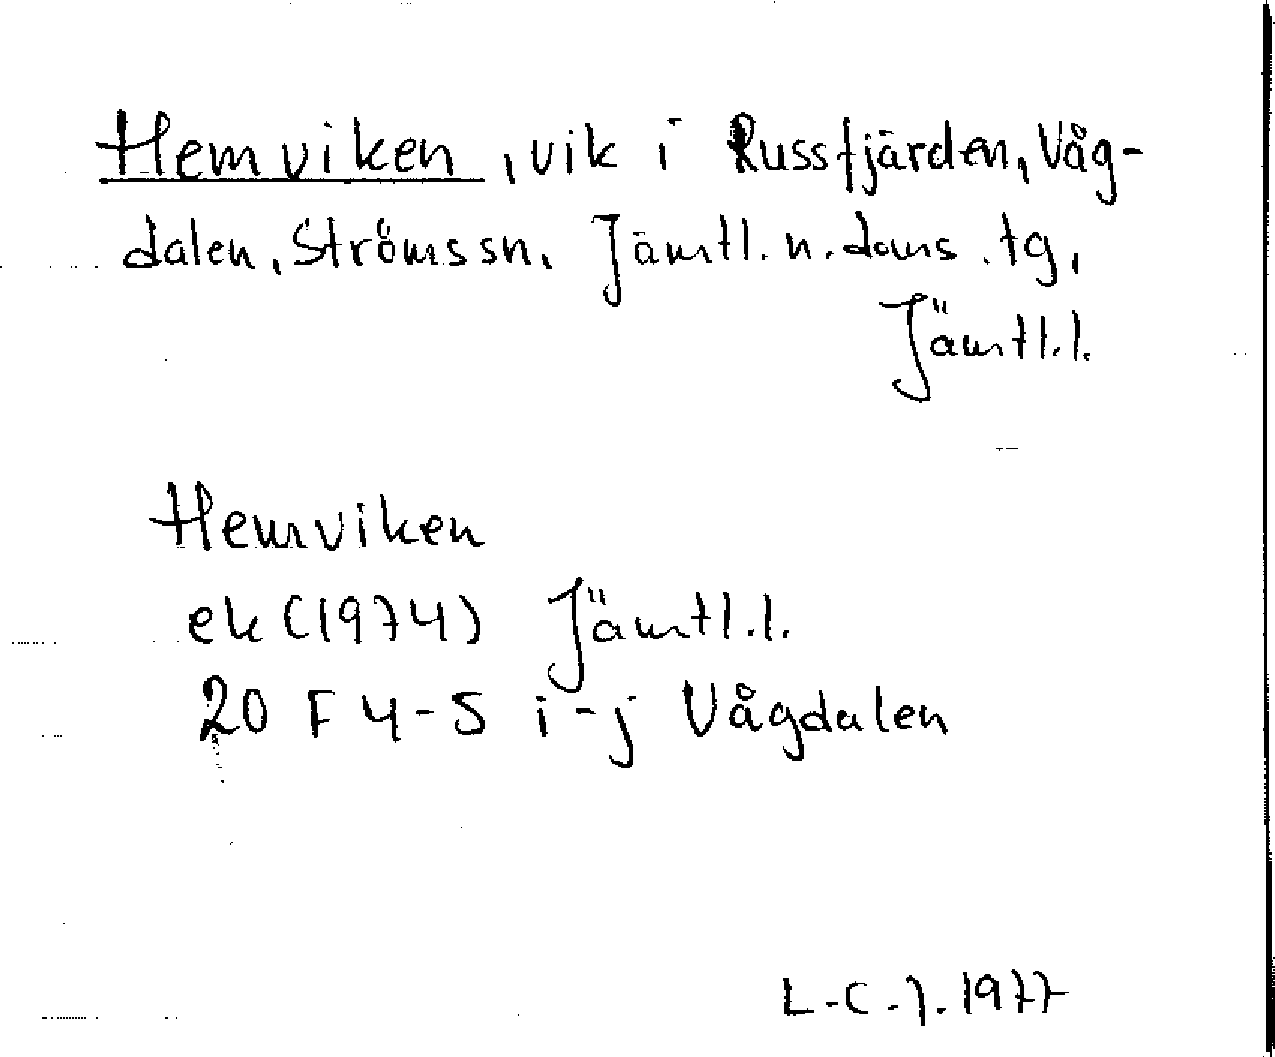 Hemviken, vik i Russfjärden, Våg-
dalen, Ströms sn, Jämtl. n. doms. tg,
Jämtl.l.
Hemviken
ek (1974) Jämtl.l.
20 F 4-5 i-j Vågdalen
L-C.J. 1977